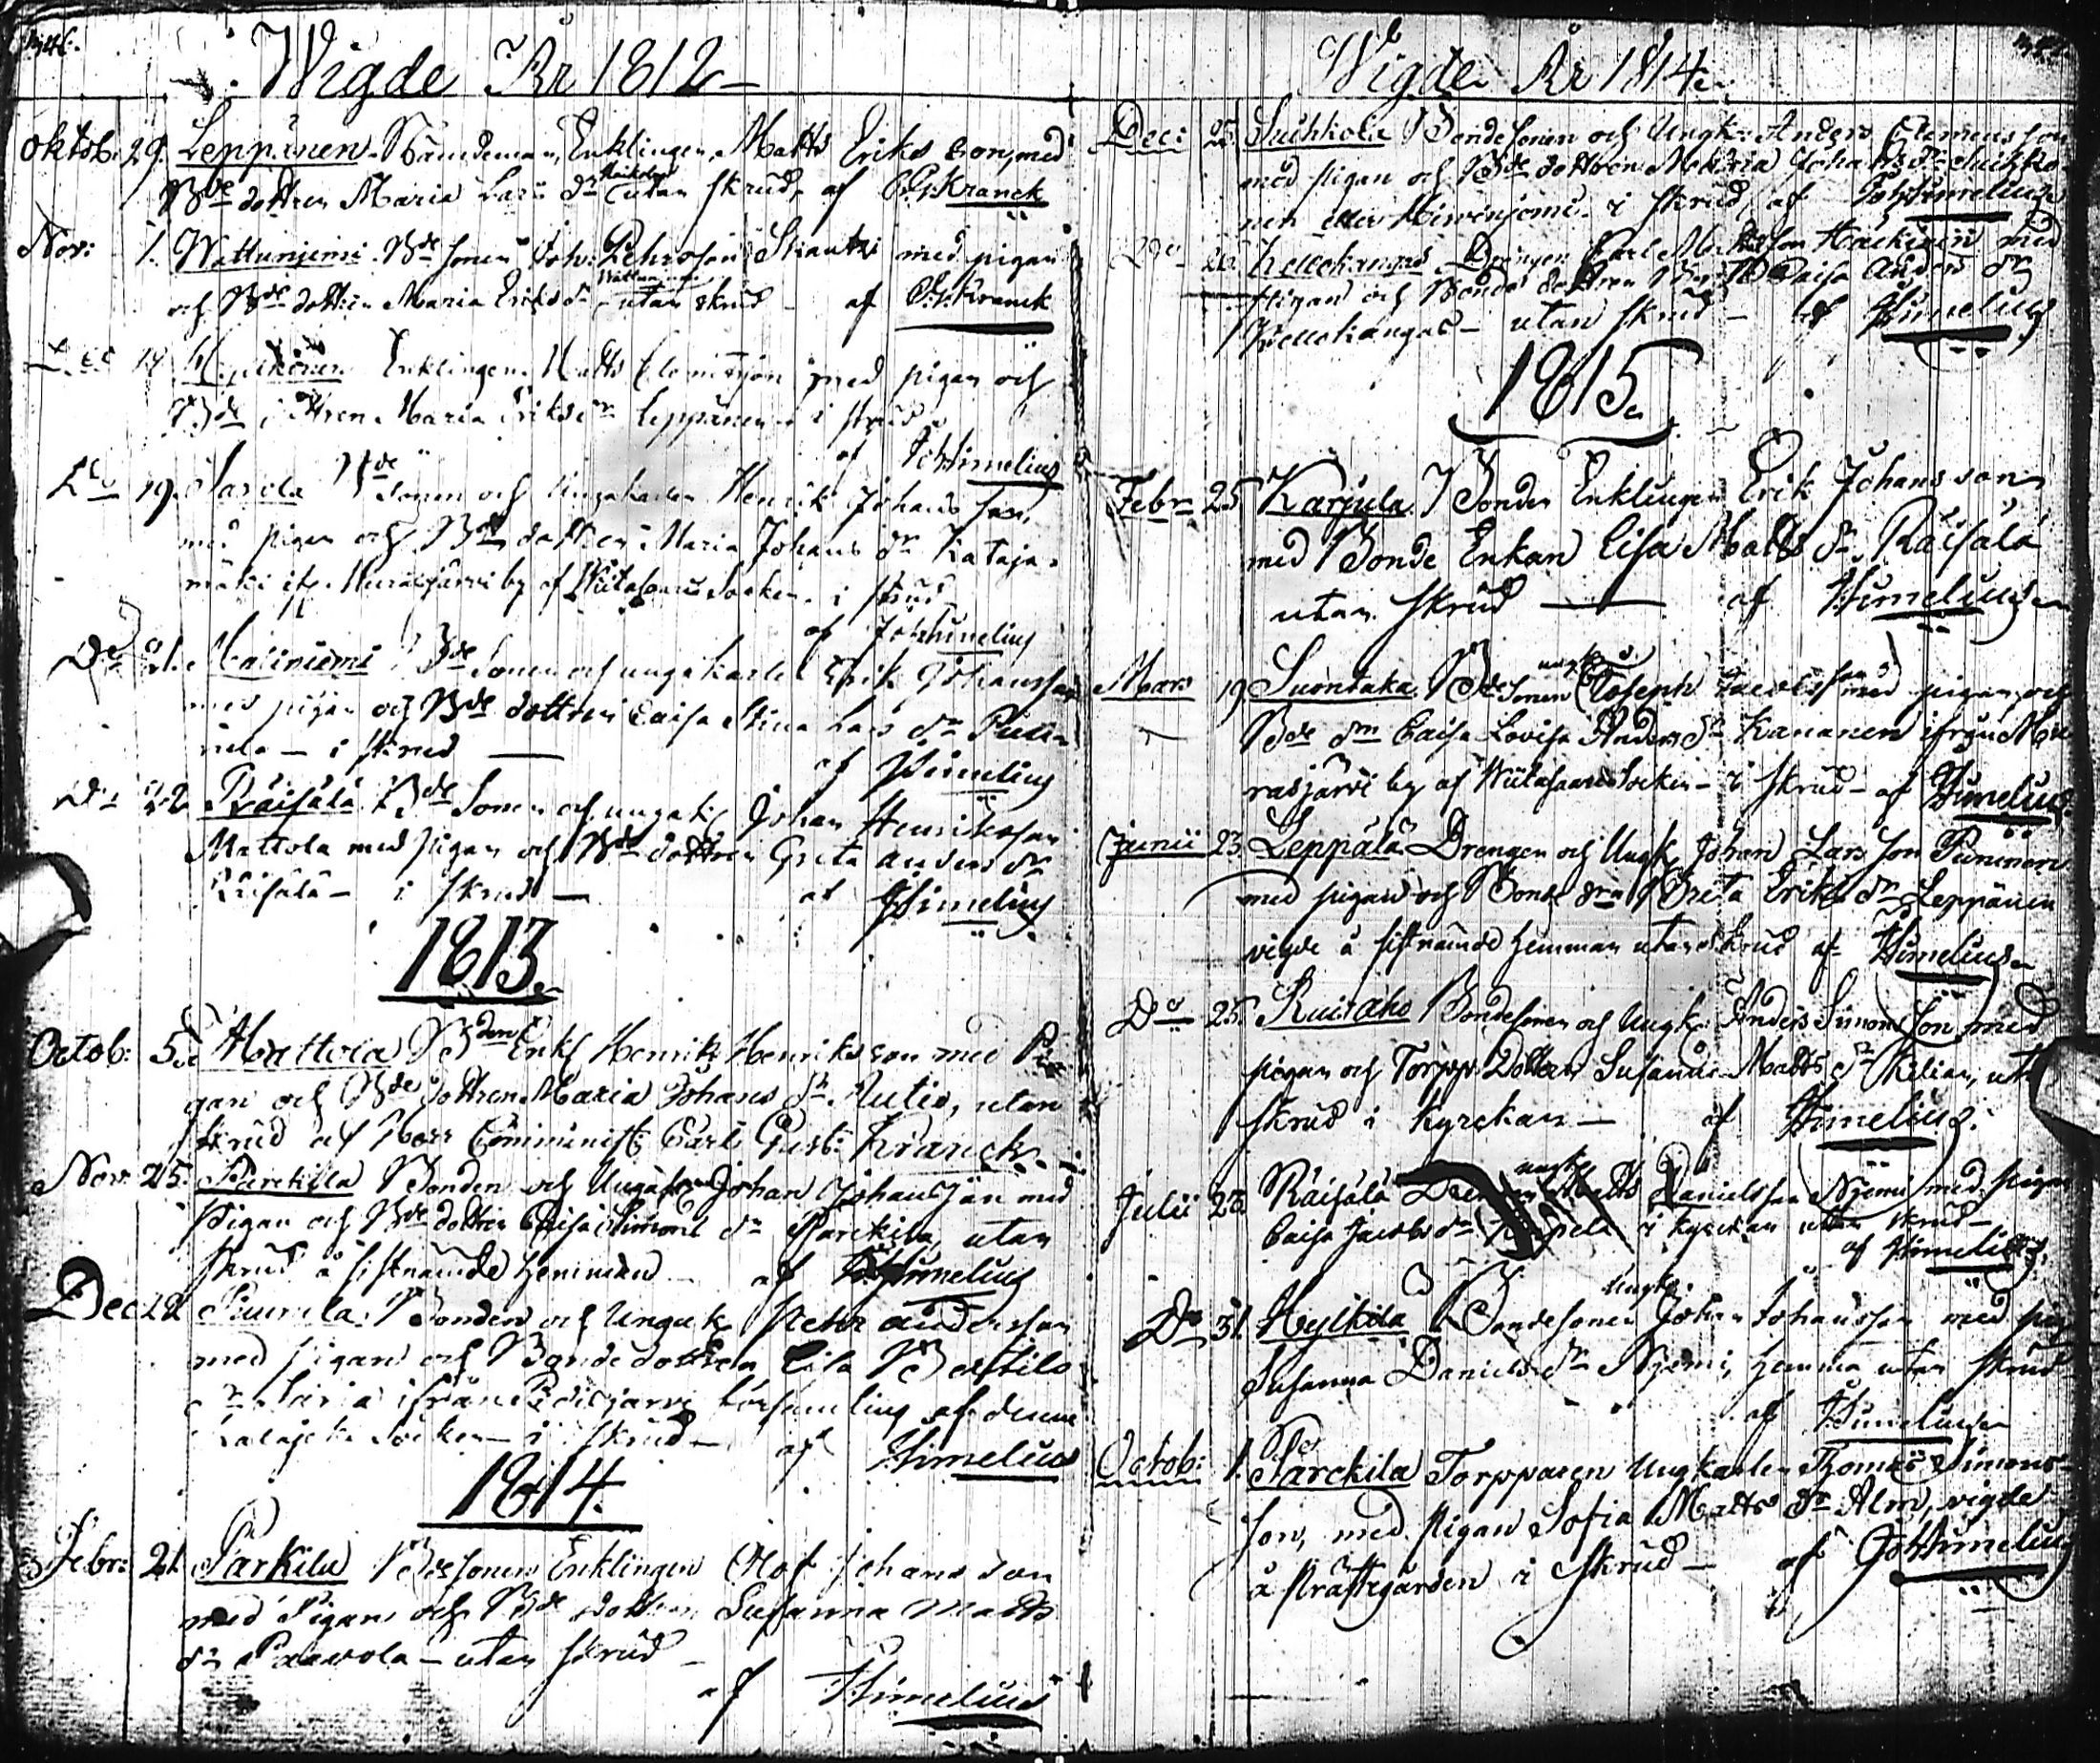 Wigde År 1812
Oktob: 29. Leppänen Nämdeman, Enklingen Matts Eriks son, med
Bde dottren Maria Lars dr utan skrud, af C.G. Kranck
Nov: 1. Wattunjemi Bde Sonen Joh: Pehrsson Skautzi med pigan
och Bde dottren Maria Eriks dr Wattuniemi utan skrud af C.G. Kranck
14 Enklingen Matts Clemetsson med pigan och
Bde dottren Maria Eriks dr Leppänen i skrud
af Joh Himelius
Do 19. Bde Sonen och Ungkarlen Henrik Johans son,
med pigan och Bde dottren Maria Johans dr Kataja-
mäki if. Muurasjärvi by af Wiitasaari Socken i skrud
af Joh Himelius
Do 21. Matiniemi Bde Sonen och ungkarlen Erik Johansson
med pigan och Bde dottren Caisa Stina Lars dr
i skrud af Himelius
Do 22 Räisälä Bde Sonen och ungk: Johan Henriksson
Mattola med pigan och Bde dottren Greta Anders dr
Räisälä i skrud af Himelius
1813.
Octob: 5. Mattola Bden Enkl Henrik Henriks son med Pi-
gan och Bde dottren Maria Johans dr Autio, utan
skrud af Herr Comminist: Carl Gust: Kranck
Nov: 25. Parckila Bonden och Ungkarlen Johan Johansson med
Pigan och Bde dotter Caisa Simons dr Parckila, utan
skrud å sistnämde hemman af Joh Himelius
Dec 12 Bonden och Ungk: Pehr Andersson
med pigan och Bonde dottren Lisa Bertils
dr ifrån Pidisjärvi församling af denne
Kalajoki Socken i skrud af Himelius
1814.
Febr: 21. Parkila Bde Sonen Enklingen Olof Johans son
med Pigan och Bde dottren Susanna Matts
dr Paavola utan skrud
af Himelius
Wigde År 1814
Dec: 25. Suihkola Bonde Sonen och Ungk: Anders Clemens son
med pigan och Bde dottren Maria Johans dr Suihko-
nen eller i skrud, af Joh Himelius
Do 26. Kellokangas Drängen Carl Matsson Häckinen med
Pigan och Bonde dottren Caisa Anders dr
Kellokangas utan skrud af Himelius
1815
Febr 25 Karjula Bonden Enklingen Erik Johansson
med Bonde Enkan Lisa Matts dr Räisälä
utan skrud af Himelius
Mars 19 Suontaka Bde Sonen ungk: Joseph Jacobsson med pigan och
Bde dm Caisa Lovisa Anders dr Kananen ifrån Mu-
rasjärvi by af Wiitasaari Socken i skrud af Himelius
Junii 23. Leppälä Drengen och Ungk Johan Lars son
med pigan och Bonde dm Greta Eriks dr Leppänen
vigde å sistnämde hemman utan skrud af Himelius
Do 25. Ruisaho Bondesonen och Ungk: Anders Simons son med
pigan och Torpp: Dottren Susanna Matts dr Kilian, utan
skrud i kyrckan af Himelius.
Julii 23 Räisälä ungk: Matts Danielsson Njemi med pigan
Caisa Jacobs dr i kyrckan utan skrud
af Himelius.
Do 31. Hylkilä Bondesonen Ungk: Johan Johansson med pig
Susanna Daniels dr Njemi, hemma utan skrud
af Himelius
Octob: 1. Parckila Torpparen Ungkarlen Thomas Simons-
son, med pigan Sofia Matts dr Alm, vigde
å prästegården i skrud af Joh Himelius